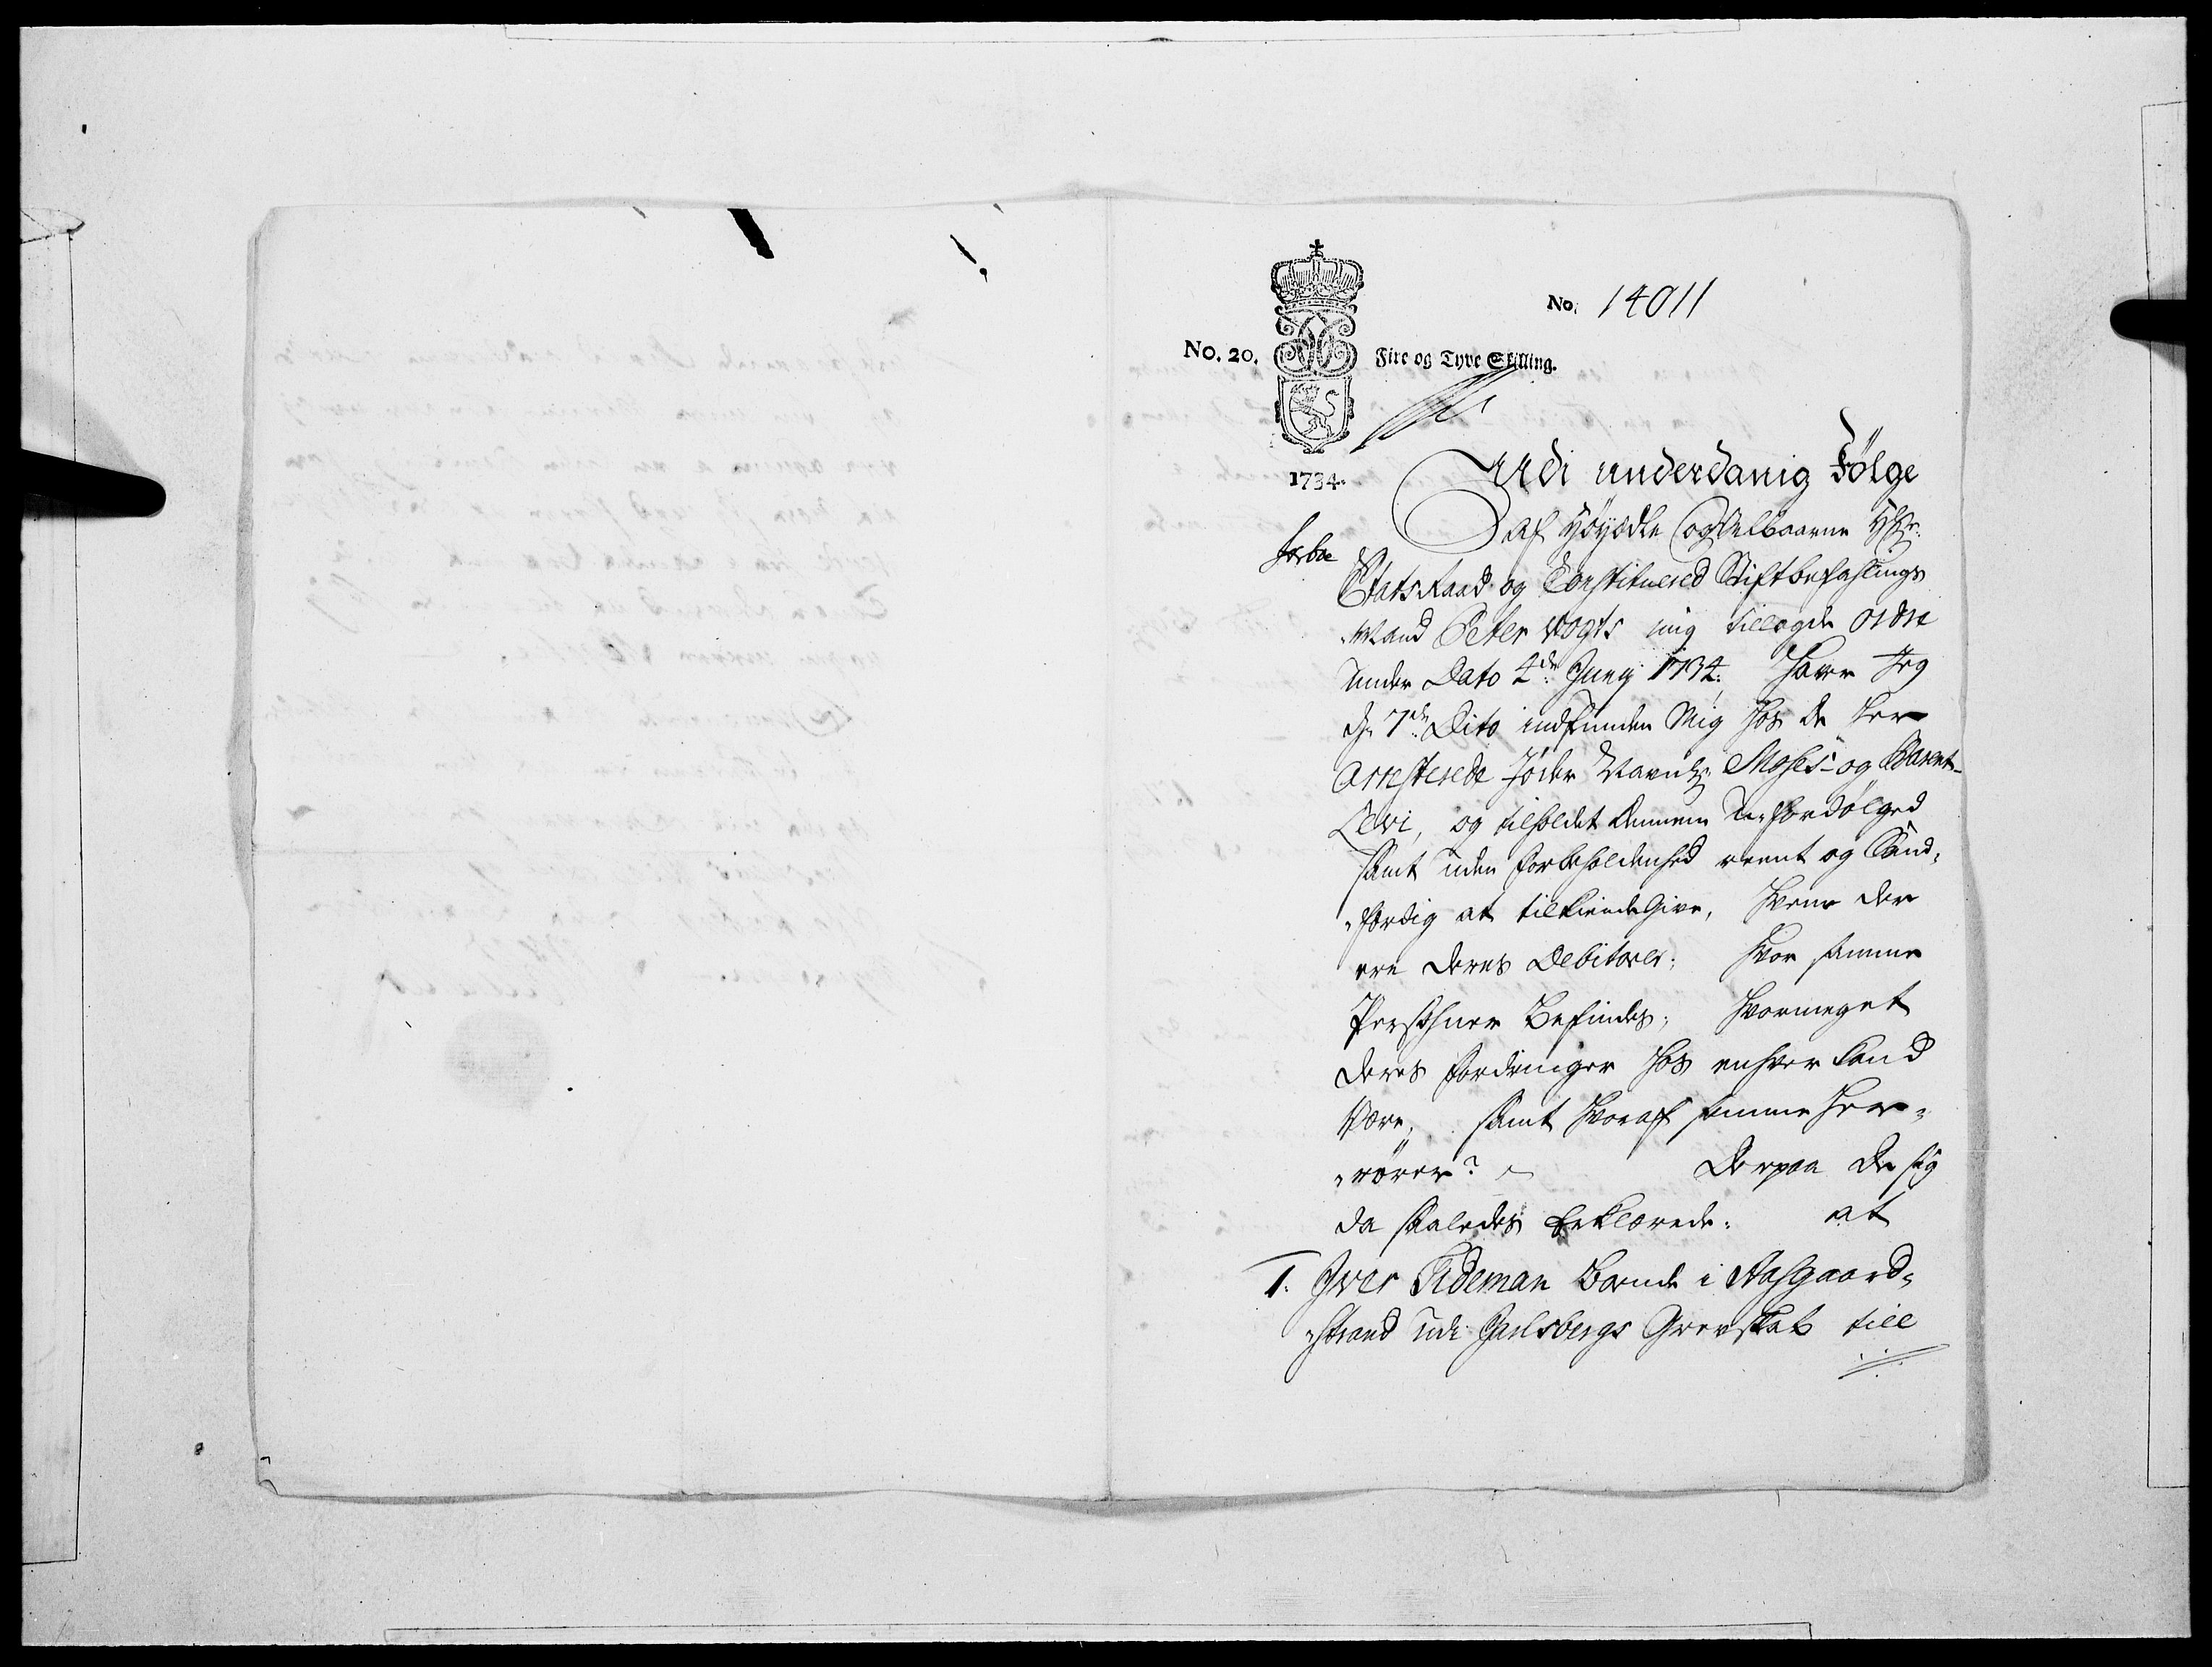 No. 14011
No. 20.
Fire og Tyve Skilling.
1734.
Udi underdanig Følge
af Høyædle og Velbaarne Hr.
Etats Raad og Constituered Stiftbefahlings
„Mand Peter Vogts mig tillagde ordre
under Dato 4de Juny 1734. haver Jeg
d. 7de Dito indfunden Mig hos de her
Arresterede Jøder Navnl: Moses- og Barent-
Levi, og tilholdet dennem U-fordølged
samt uden forbeholdenhed reent og Sand-
„færdig at tilkiendegive, hvem der
ere deres Debitorer; hvor samme
Persohner Befindes; hvormeget
deres fordringer hos enhver kand
Være; samt hvoraf samme her-
„rører? Derpaa de sig
da saaledes Erklærede: at
1. Iver Tideman Boende i Aasgaard-
„strand udi Jarlsbergs Grevskab till